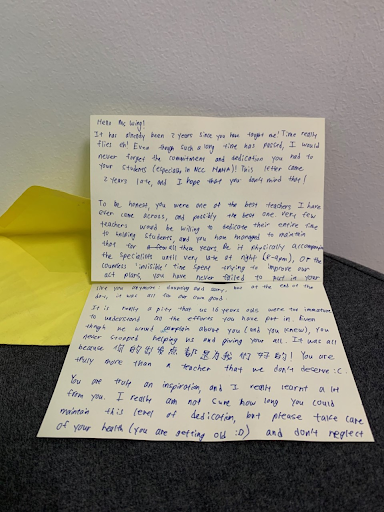 Hello Mr Wing!
It has already been 2 years since you have taught me! Time really
flies eh! Even though such a long time has passed, I would
never forget the commitment and dedication you had to
your students (especially in NCC March)! This letter came
2 years late, and I hope that you don't mind that!
To be honest, you were one of the best teachers I have
ever come across, and possibly the best one. Very few
teachers would be willing to dedicate their entire time
to helping students, and you have managed to maintain
that for all these years. Be it physically accompanying
the specialists until very late at night (8-9pm), or the
countless 'invisible' time spent trying to improve our
act plans, you have never failed to put in your
like you anymore! but at the end of the
day, it was all for our own good.
It is really a pity that us 16 years olds were too immature
to understand all the efforts you have put in. Even
though we would complain about you (and you knew), you
never stopped helping us and giving your all. It was all
because 你的出发点都是为我们好的! You are
truly more than a teacher that we don't deserve :C.
You are truly an inspiration, and I really learnt a lot
from you. I really am not sure how long you could
maintain this level of dedication, but please take care
of your health (you are getting old :D) and don't neglect